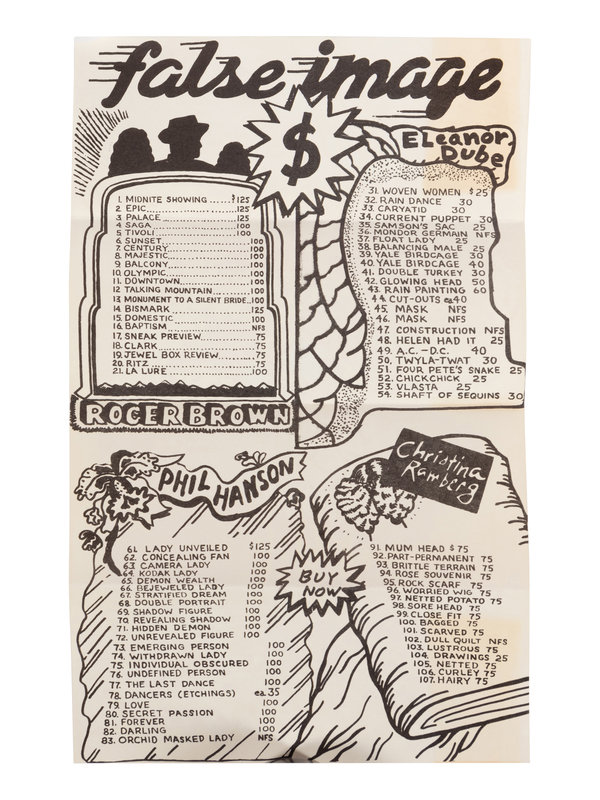 false image
$
1. MIDNITE SHOWING......$125
2. EPIC......................125
3. PALACE..................125
4. SAGA....................100
5. TIVOLI...................100
6. SUNSET..................100
7. CENTURY.................100
8. MAJESTIC................100
9. BALCONY.................100
10. OLYMPIC................100
11. DOWNTOWN..............100
12. TALKING MOUNTAIN......100
13. MONUMENT TO A SILENT BRIDE..100
14. BISMARK................125
15. DOMESTIC...............100
16. BAPTISM................NFS
17. SNEAK PREVIEW..........75
18. CLARK..................75
19. JEWEL BOX REVIEW.......75
20. RITZ...................75
21. LA LURE................100
ROGER BROWN
ELeanor
Dube
31. WOVEN WOMEN $25
32. RAIN DANCE 30
33. CARYATID 30
34. CURRENT PUPPET 30
35. SAMSON'S SAC 25
36. MONDOR GERMAIN NFS
37. FLOAT LADY 25
38. BALANCING MALE 25
39. YALE BIRDCAGE 30
40. YALE BIRDCAGE 40
41. DOUBLE TURKEY 30
42. GLOWING HEAD 50
43. RAIN PAINTING 60
44. CUT-OUTS ea40
45. MASK NFS
46. MASK NFS
47. CONSTRUCTION NFS
48. HELEN HAD IT 25
49. A.C.-D.C. 40
50. TWYLA-TWAT 30
51. FOUR PETE'S SNAKE 25
52. CHICKCHICK 25
53. VLASTA 25
54. SHAFT OF SEQUINS 30
PHIL HANSON
61. LADY UNVEILED $125
62. CONCEALING FAN 100
63. CAMERA LADY 100
64. KODAK LADY 100
65. DEMON WEALTH 100
66. BEJEWELED LADY 100
67. STRATIFIED DREAM 100
68. DOUBLE PORTRAIT 100
69. SHADOW FIGURE 100
70. REVEALING SHADOW 100
71. HIDDEN DEMON 100
72. UNREVEALED FIGURE 100
73. EMERGING PERSON 100
74. WITHDRAWN LADY 100
75. INDIVIDUAL OBSCURED 100
76. UNDEFINED PERSON 100
77. THE LAST DANCE 100
78. DANCERS (ETCHINGS) ea.35
79. LOVE 100
80. SECRET PASSION 100
81. FOREVER 100
82. DARLING 100
83. ORCHID MASKED LADY NFS
BUY
NOW
Christina
Ramberg
91. MUM HEAD $75
92. PART-PERMANENT 75
93. BRITTLE TERRAIN 75
94. ROSE SOUVENIR 75
95. ROCK SCARF 75
96. WORRIED WIG 75
97. NETTED POTATO 75
98. SORE HEAD 75
99. CLOSE FIT 75
100. BAGGED 75
101. SCARVED 75
102. DULL QUILT NFS
103. LUSTROUS 75
104. DRAWINGS 25
105. NETTED 75
106. CURLEY 75
107. HAIRY 75